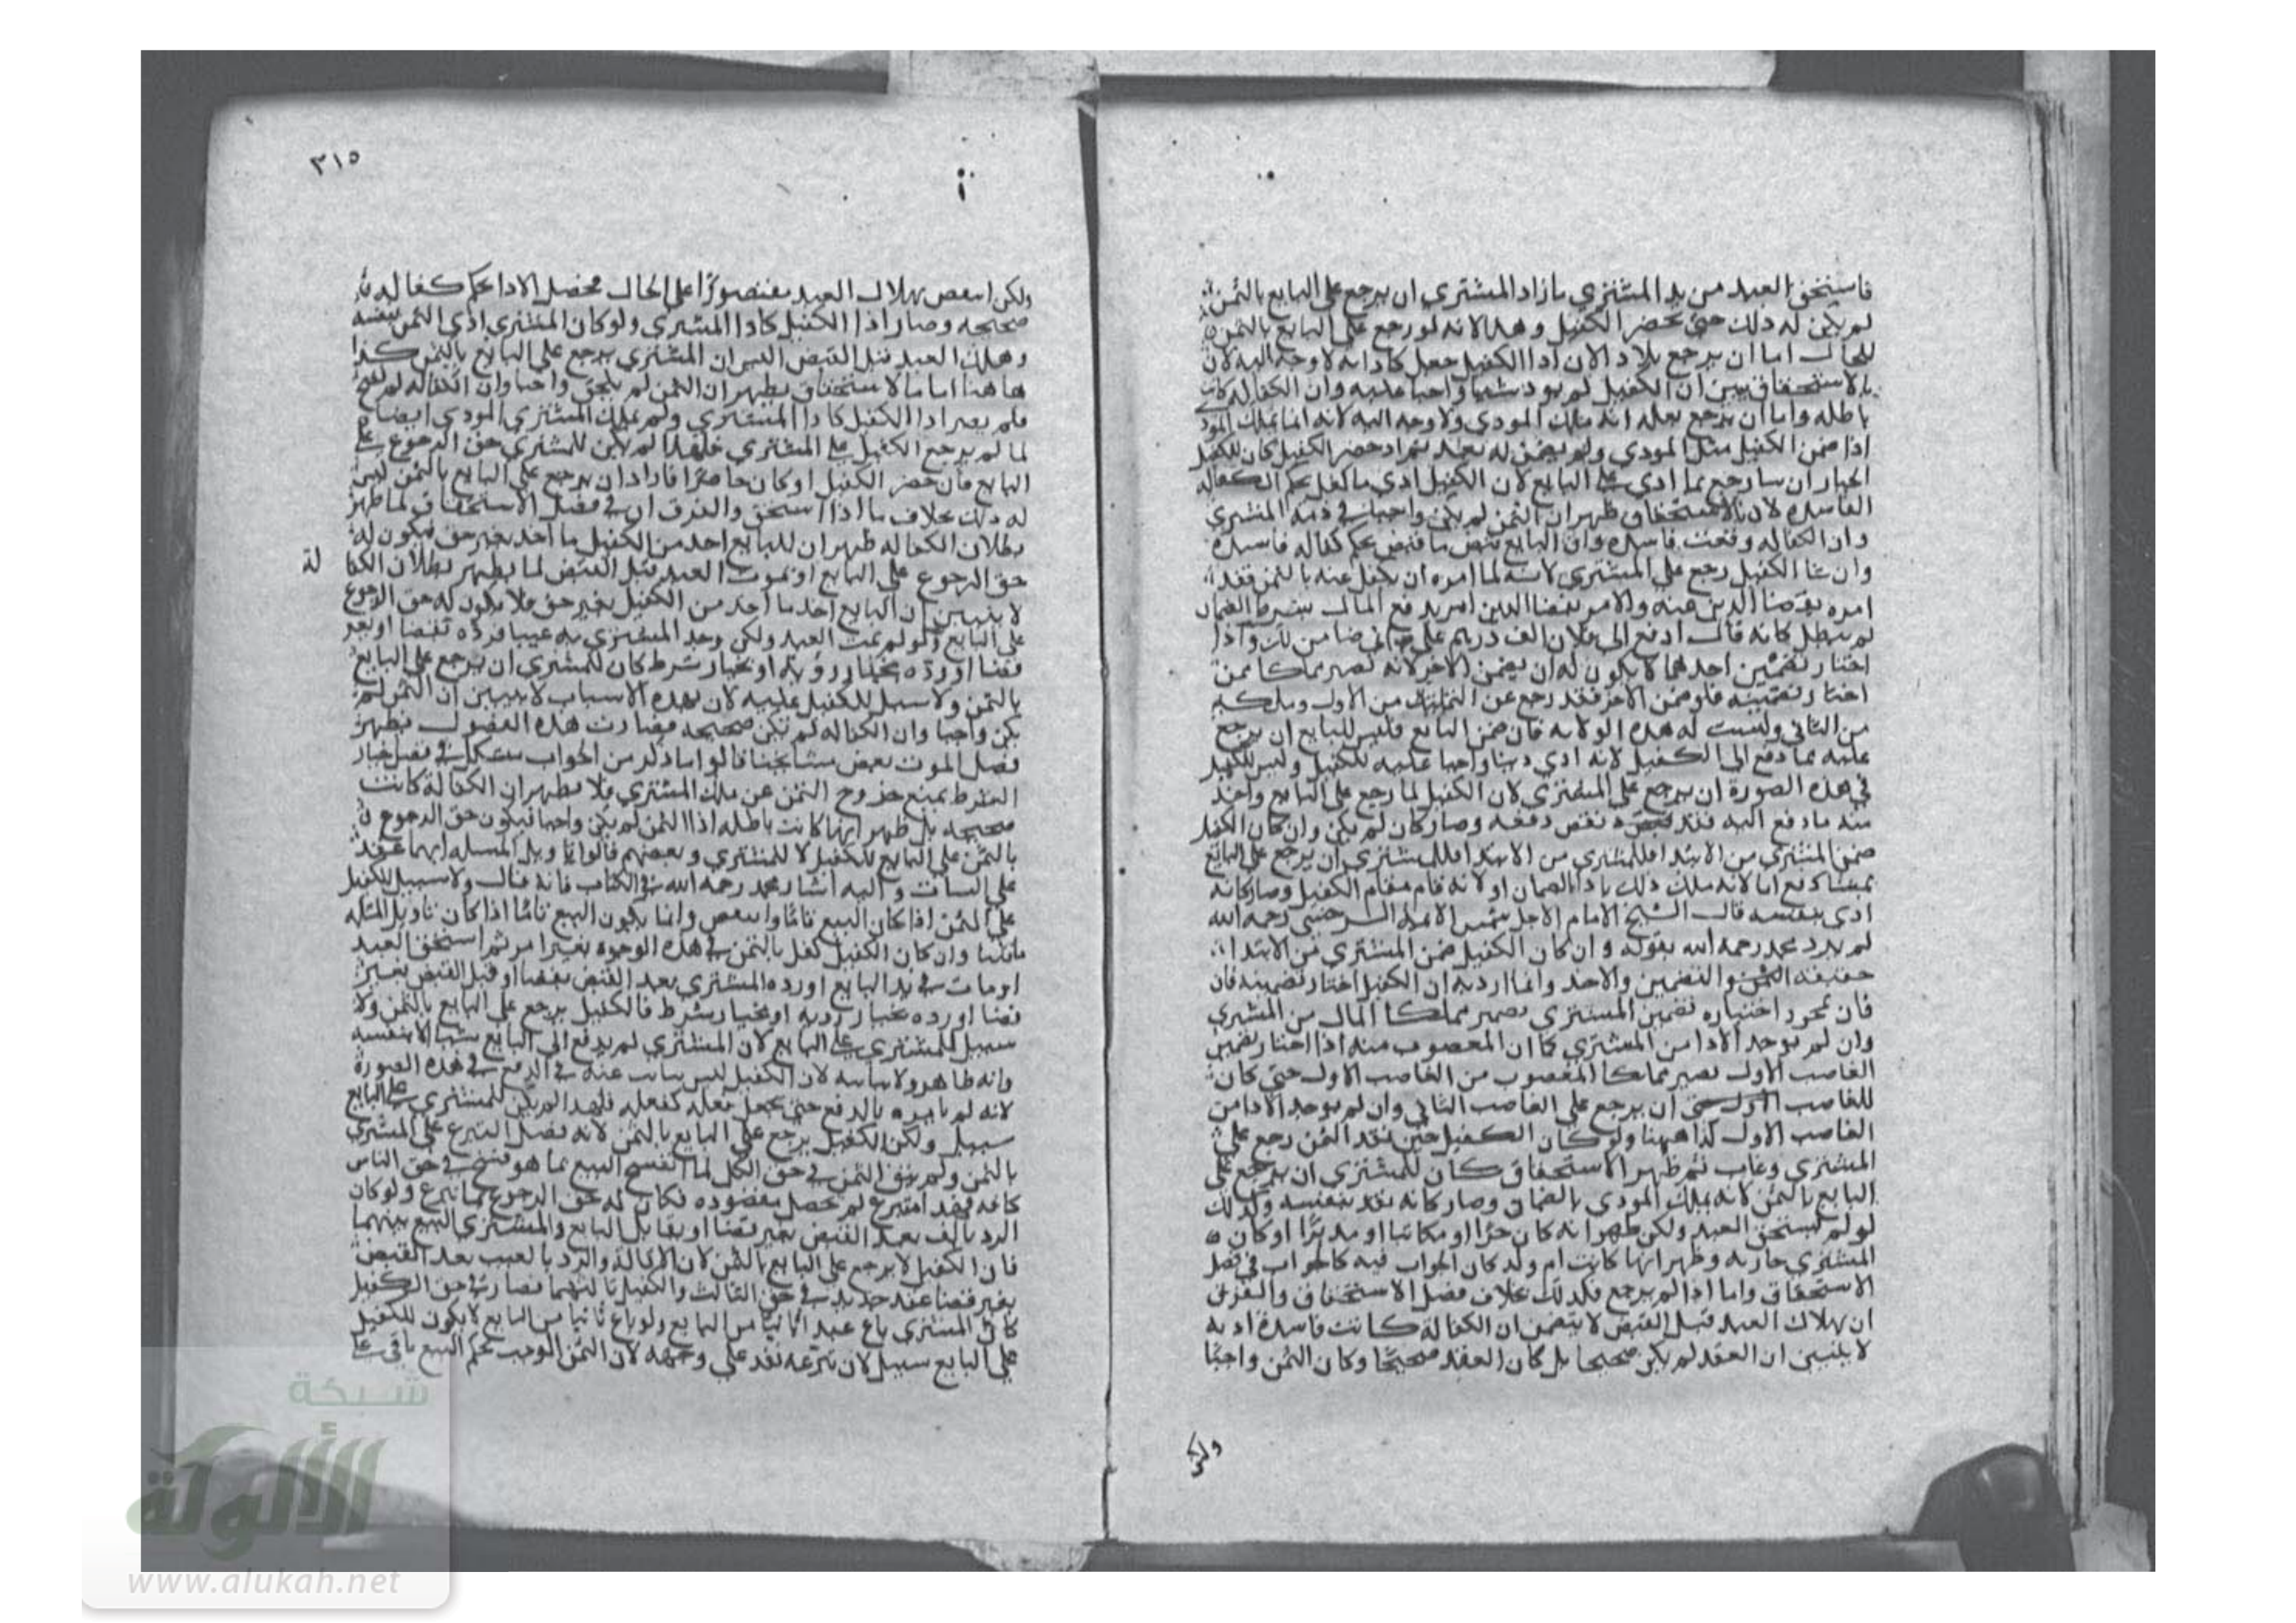 فاستحق العبد من يد المشتري فاراد المشتري ان يرجع على البايع بالثمن
لم يكن له ذلك حتى يحضر الكفيل وهذا لانه لو رجع على البايع بالثمن
للحال اما ان يرجع بلا اداء لان اداء الكفيل جعل كادايه لا وجه اليه لان
بالاستحقاق تبين ان الكفيل لم يود شيا واجبا عليه وان الكفالة كانت
باطله واما ان يرجع بعله انه ملك المودي ولا وجه اليه لانه انما يملك المودي
اذا ضمن الكفيل مثل المودي ولم يضمن له بعد ثم اذ حضر الكفيل كان للكفيل
الخيار ان شا رجع بما ادى على البايع لان الكفيل ادى ما كفل بحكم الكفالة
الفاسده لان بالاستحقاق ظهر ان الثمن لم يكن واجبا في ذمة المشتري
وان الكفاله وقعت فاسده وان البايع قبض ما قبض بحكم كفاله فاسدة
وان شا الكفيل رجع على المشتري لانه لما امره ان يكفل عنه بالثمن فقد
امره بقضا الدين عنه والامر بقضا الدين امر بدفع المال بشرط الضمان
لم يبطل كانه قال ادفع الى فلان الف درهم على اني ضامن لك واذا
اختار تضمين احدهما لا يكون له ان يضمن الاخر لانه تصير مملكا ممن
اختار تضمينه فلو ضمن الاخر فقد رجع عن التمليك من الاول وملكه
من الثاني وليست له هذه الولاية فان ضمن البايع فليس للبايع ان يرجع
عليه بما دفع الى الكفيل لانه ادى دينا واجبا عليه للكفيل وليس للكفيل
في هذه الصورة ان يرجع على المشتري لان الكفيل لما رجع على البايع واخذ
منه ما دفع اليه فقد نقض دفعه وصار كان لم يكن وان كان الكفيل
ضمن المشتري من الابتدا فللمشتري من الابتدا فللمشتري ان يرجع على البايع
بما دفع اما لانه ملك ذلك باداء الضمان او لانه قام مقام الكفيل وصار كانه
ادى بنفسه قال الشيخ الامام الاجل شمس الايمة السرخسي رحمه الله
لم يرد محمد رحمه الله بقوله وان كان الكفيل ضمن المشتري من الابتدا
حقيقة التضمين والاخذ وانما اراد به ان الكفيل اختار تضمينه فان
فان بمجرد اختياره تضمين المشتري يصير مملكا المال من المشتري
وان لم يوجد الادا من المشتري كما ان المغصوب منه اذا اختار تضمين
الغاصب الاول يصير مملكا المغصوب من الغاصب الاول حتى كان
للغاصب الاول ان يرجع على الغاصب الثاني وان لم يوجد الادا من
الغاصب الاول كذا ههنا ولو كان الكفيل حين نقد الثمن رجع على
المشتري وغاب ثم ظهر الاستحقاق كان للمشتري ان يرجع على
البايع بالثمن لانه يملك المودى بالضمان وصار كانه نقد بنفسه وكذلك
لو لم يستحق العبد ولكن ظهر انه كان حرا او مكاتبا او مدبرا او كان
المشتري جاريه وظهر انها كانت ام ولد كان الجواب فيه كالجواب في فصل
الاستحقاق واما اذا لم يرجع فكذلك بخلاف فصل الاستحقاق والفرق
ان بهلاك العبد قبل القبض لا يتضح ان الكفالة كانت فاسدة اذ به
لا يتبين ان العقد لم يكن صحيحا بل كان العقد صحيحا وكان الثمن واجبا
ولكن
٣١٥
ولكن انتقض بهلاك العبد مقتصورا على الحال فحصل الادا بحكم كفالة
صحيحه وصار اداء الكفيل كاداء المشتري ولو كان المشتري ادى الثمن بنفسه
وهلك العبد قبل القبض اليس ان المشتري يرجع على البايع بالثمن كذا
هاهنا اما بالاستحقاق يظهر ان الثمن لم يكن واجبا وان الكفاله لم تصح
فلم يصر ادا الكفيل كاداء المشتري ولم يملك المشتري المودى ايضا
لما لم يرجع الكفيل على المشتري فلهذا لم يكن للمشتري حق الرجوع على
البايع فان حضر الكفيل او كان حاضرا فاراد ان يرجع على البايع بالثمن ليس
له ذلك بخلاف ما اذا استحق والفرق ان في فصل الاستحقاق لما ظهر
بطلان الكفاله ظهر ان للبايع اخذ من الكفيل ما اخذ بغير حق فيكون له
حق الرجوع على البايع او بموت العبد قبل القبض لما يظهر بطلان الكفا لة
لا يتبين ان البايع اخذ ما اخذ من الكفيل بغير حق فلا يكون له حق الرجوع
على البايع ولو لم يمت العبد ولكن وجد المشتري به عيبا فرده بقضا او بغير
قضا او رده بخيار رؤية او بخيار شرط كان للمشتري ان يرجع على البايع
بالثمن ولا سبيل للكفيل عليه لان بهذه الاسباب لا يتبين ان الثمن لم
يكن واجبا وان الكفاله لم تكن صحيحه فصارت هذه الفصول نظير
فصل الموت بعض مشايخنا قالوا ما ذكر من الجواب مشكل في فصل خيار
الشرط يمنع خروج الثمن عن ملك المشتري فلا يظهر ان الكفالة كانت
صحيحه بل ظهر انها كانت باطله اذا الثمن لم يكن واجبا فيكون حق الرجوع
بالثمن على البايع للكفيل لا للمشتري وبعضهم قالوا تاويل المسله انهما عقدا
على البتات واليه اشار محمد رحمه الله في الكتاب فانه قال ولا سبيل للكفيل
على الثمن اذا كان البيع تاما وانتقض وانما يكون البيع تاما اذا كان تاويل المسله
ما قلنا وان كان الكفيل كفل بالثمن في هذه الوجوه بغير امر ثم استحق العبد
او مات في يد البايع او رده المشتري بعد القبض بقضا او قبل القبض بغير
قضا او رده بخيار رويه او بخيار شرط فالكفيل يرجع على البايع بالثمن ولا
سبيل للمشتري على البايع لان المشتري لم يدفع الى البايع شيا لا بنفسه
وانه ظاهر ولا بنايبه لان الكفيل ليس بنايب عنه في الدفع في هذه الصورة
لانه لم يامره بالدفع حتى يجعل فعله كفعله فلهذا لم يكن للمشتري على البايع
سبيل ولكن الكفيل يرجع على البايع بالثمن لانه تصل التبرع على المشتري
بالثمن ولم يبق الثمن في حق الكل لما انفسخ البيع بما هو فسخ في حق الناس
كافه فهذا متبرع لم يحصل مقصوده فكان له حق الرجوع بما تبرع ولو كان
الرد بالعيب بعد القبض بغير قضا او تقايل البايع والمشتري البيع بينهما
فان الكفيل لا يرجع على البايع بالثمن لان الاقالة والرد بالعيب بعد القبض
بغير قضا عقد جديد في حق الثالث والكفيل ثالثهما فصار في حق الكفيل
كان المشتري باع عبدا ثانيا من البايع ولو باع ثانيا من البايع لا يكون للكفيل
على البايع سبيل لان تبرعه نفذ على وجهه لان الثمن الواجب بحكم البيع باقي على
شبكة
الألوكة
www.alukah.net